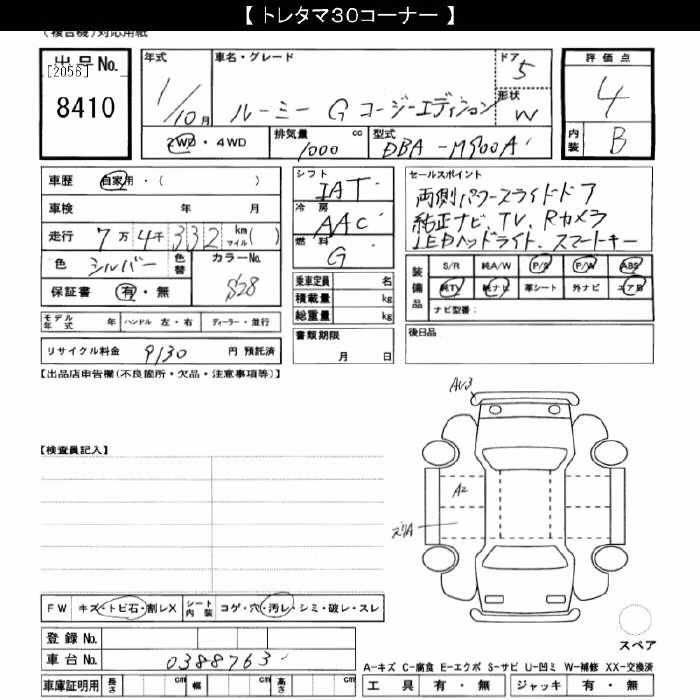 【 トレタマ30コーナー 】
(複合機)対応用紙
出品No.
[2056]
8410
年式
1/10月
車名・グレード
ルーミー G コージーエディション
ドア
5
形状
W
評価点
4
内装
B
2WD・4WD
排気量 cc
1000
型式
DBA-M900A
車歴 自家用・( )
車検 年 月
走行 7万4千332 km マイル( )
色 シルバー 色替 カラーNo. S28
保証書 有・無
シフト
IAT
冷房
AAC
燃料
G
乗車定員 名
積載量 kg
総重量 kg
書類期限
月 日
セールスポイント
両側パワースライドドア
純正ナビ、TV、Rカメラ
LEDヘッドライト、スマートキー
装備品
S/R 純A/W P/S P/W ABS
純TV 純ナビ 革シート 外ナビ エアB
ナビ型番:
後日品
モデル年式 年 ハンドル 左・右 ディーラー・並行
リサイクル料金 9130 円 預託済
【出品店申告欄(不良箇所・欠品・注意事項等)】
【検査員記入】
A2
FW キズ・トビ石・割レX シート内装 コゲ・穴・汚レ・シミ・破レ・スレ
登録No.
車台No. 0388763
車庫証明用 長さ cm 幅 cm 高さ cm
スペア
A-キズ C-腐食 E-エクボ S-サビ U-凹ミ W-補修 XX-交換済
工具 有・無 ジャッキ 有・無